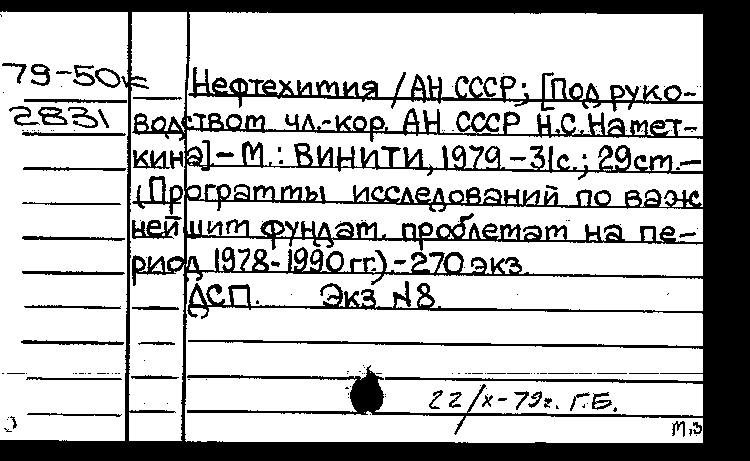 79-50к
2831
Нефтехимия / АН СССР; [Под руко-
водством чл.-кор. АН СССР Н.С.Намет-
кина] - М.: ВИНИТИ, 1979. - 31с.; 29см. -
(Программы исследований по важ
нейшим фундам. проблемам на пе-
риод 1978-1990 гг.) - 270 экз.
ДСП. Экз N8.
22/X-79г. Г.Б.